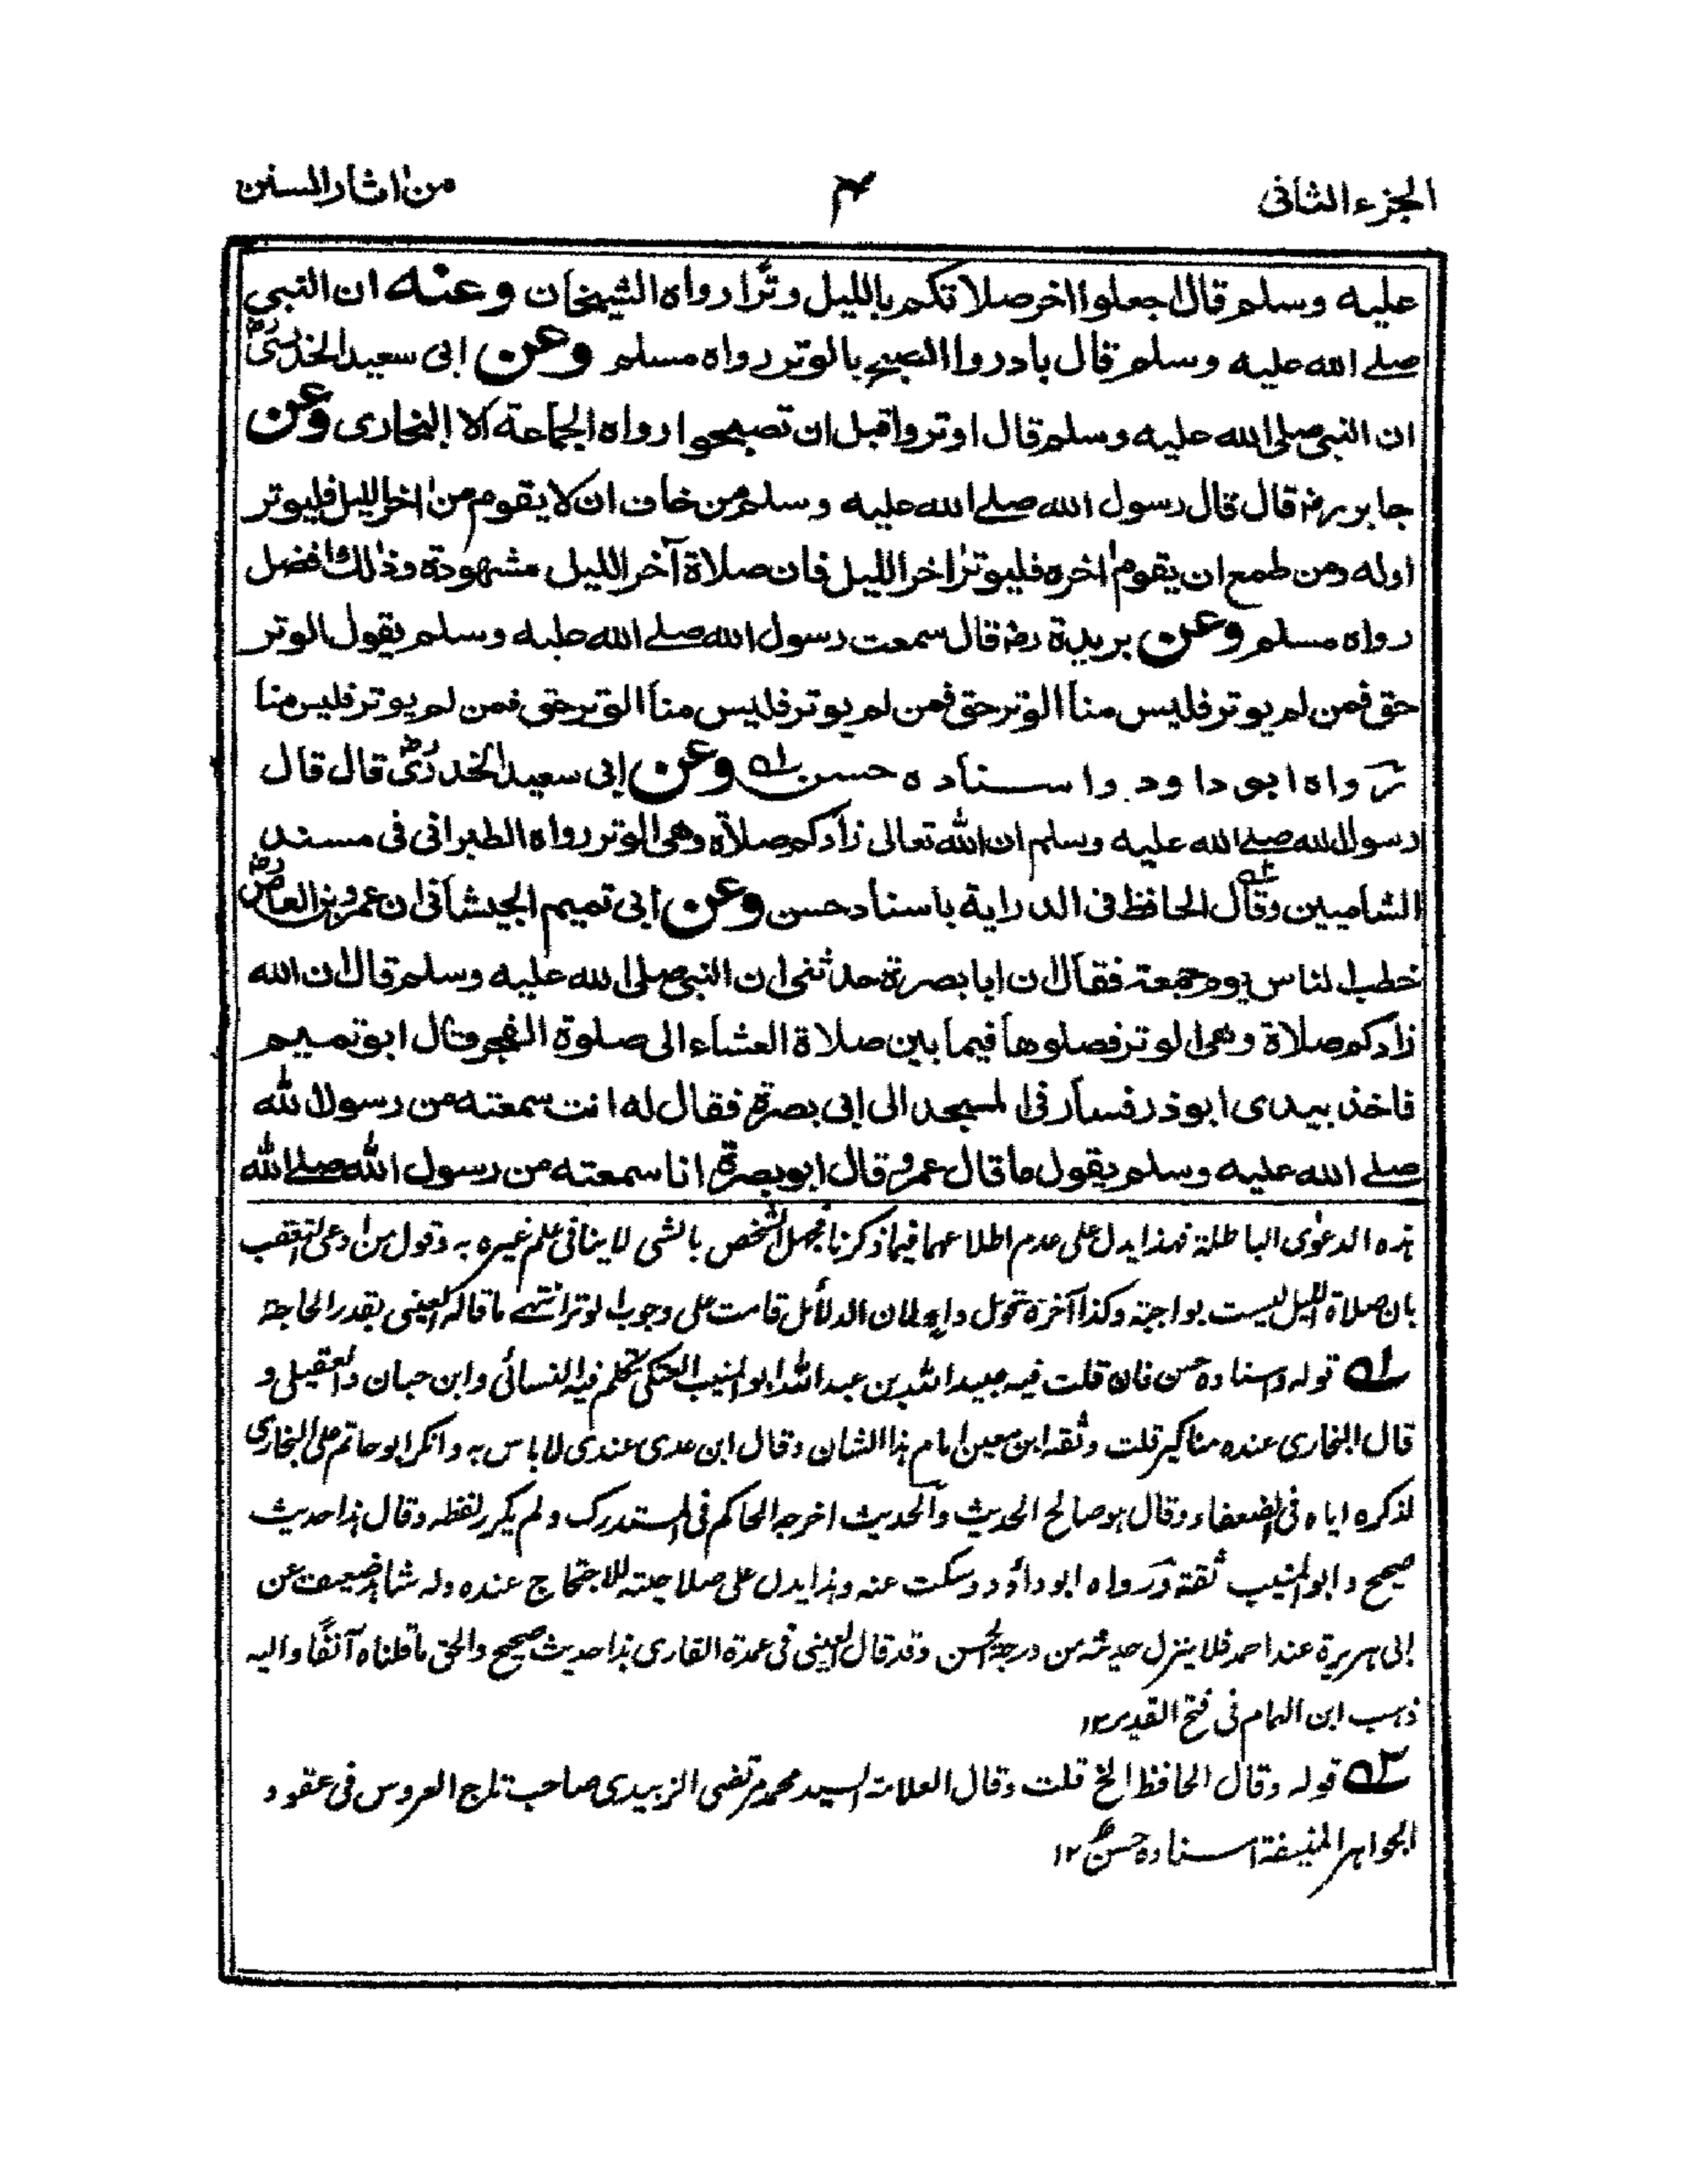 الجزء الثانى
۴
من اثار السنن
عليه وسلم قال اجعلوا اخر صلاتكم بالليل وترا رواه الشيخان وعنه ان النبى
صلے الله عليه وسلم قال بادروا الصبح بالوتر رواه مسلم وعن ابى سعيد الخدرىؓ
ان النبى صلى الله عليه وسلم قال اوتروا قبل ان تصبحوا رواه الجماعة الا البخارى وعن
جابر رضـ قال قال رسول الله صلے الله عليه وسلم من خاف ان لا يقوم من اخر الليل فليوتر
اوله ومن طمع ان يقوم اخره فليوتر اخر الليل فان صلاة آخر الليل مشهودة وذلك افضل
رواه مسلم وعن بريدة رضـ قال سمعت رسول الله صلے الله عليه وسلم يقول الوتر
حق فمن لم يوتر فليس منا الوتر حق فمن لم يوتر فليس منا الوتر حق فمن لم يوتر فليس منا
رواه ابو داود واسناده حسن ۱ه وعن ابى سعيد الخدرىؓ قال قال
رسول الله صلے الله عليه وسلم ان الله تعالى زادكم صلاة وهى الوتر رواه الطبرانى فى مسند
الشاميين وقال ۲ه الحافظ فى الدراية باسناد حسن وعن ابى تميم الجيشانى ان عمرو بن العاصؓ
خطب الناس يوم جمعة فقال ان ابا بصرة حدثنى ان النبى صلى الله عليه وسلم قال ان الله
زادكم صلاة وهى الوتر فصلوها فيما بين صلاة العشاء الى صلوة الفجر قال ابو تميم
فاخذ بيدى ابو ذر فسار فى المسجد الى ابى بصرة فقال له انت سمعته من رسول الله
صلے الله عليه وسلم يقول ما قال عمرو قال ابو بصرة انا سمعته من رسول الله صلے الله
هذه الدعوى الباطلة فهذا يدل على عدم اطلاعهما فيما ذكرنا فجهل الشخص بالشى لا ينافى علم غيره به وقول من ادعى التعقب
بان صلاة الليل ليست بواجبة وكذا آخره تحول وايطان الدلائل قامت على وجوب الوتر انتهے ما قاله العينى بقدر الحاجة
۱ه قوله واسناده حسن فان قلت فيه عبيد الله بن عبد الله ابو المنيب العتكى تكلم فيه النسائى وابن حبان والعقيلى و
قال البخارى عنده مناكير قلت وثقه ابن معين امام هذا الشان وقال ابن عدى عندى لا باس به وانكر ابو حاتم على البخارى
لذكره اياه فى الضعفاء وقال هو صالح الحديث والحديث اخرجه الحاكم فى المستدرك ولم يكرر لفظه وقال هذا حديث
صحيح وابو المنيب ثقة ورواه ابو داؤد وسكت عنه وهذا يدل على صلاحيته للاحتجاج عنده وله شاهد ضعيف عن
ابى هريرة عند احمد فلا ينزل حديثه من درجة الحسن وقد قال العينى فى عمدة القارى هذا حديث صحيح والحق ما قلناه آنفًا واليه
ذهب ابن الهمام فى فتح القدير ۱۲
۲ه قوله وقال الحافظ الخ قلت وقال العلامة السيد محمد مرتضى الزبيدى صاحب تاج العروس فى عقود
الجواهر المنيفة اسناده حسن ۱۲